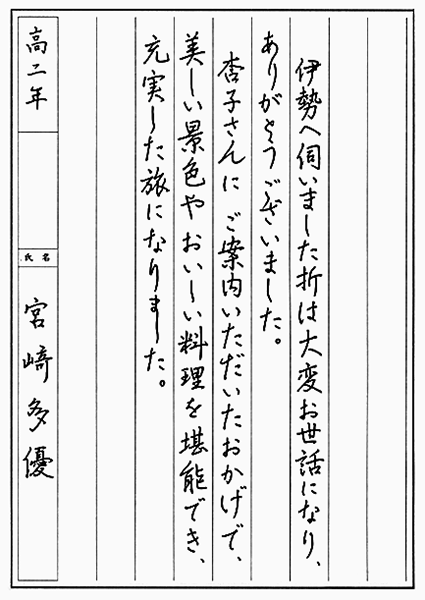 伊勢へ伺いました折は大変お世話になり、
ありがとうございました。
杏子さんにご案内いただいたおかげで、
美しい景色やおいしい料理を堪能でき、
充実した旅になりました。
高二年
氏名
宮崎多優